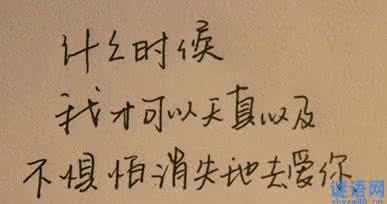 什么时候
我才可以天真以及
不惧怕消失地去爱你
谜语网